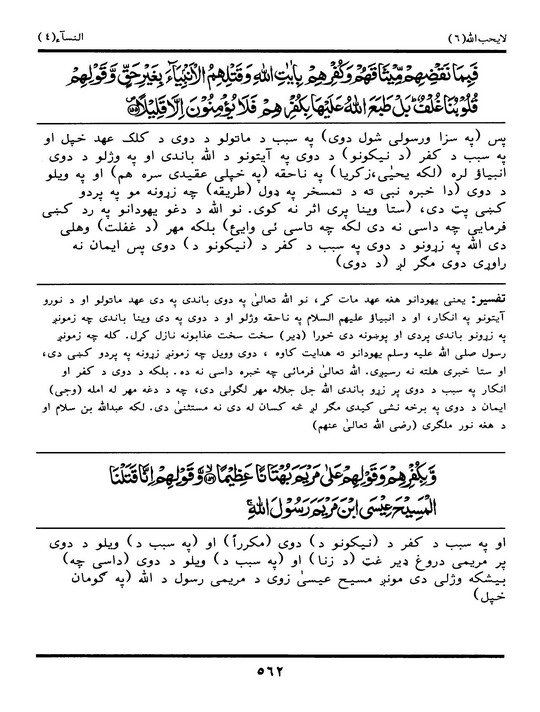 لايحب الله (٦)
النسآء (٤)
فَبِمَا نَقْضِهِمْ مِّيْثَاقَهُمْ وَكُفْرِهِمْ بِاٰيٰتِ اللهِ وَقَتْلِهِمُ الْاَنْۢبِيَآءَ بِغَيْرِ حَقٍّ وَّقَوْلِهِمْ
قُلُوْبُنَا غُلْفٌ ؕ بَلْ طَبَعَ اللهُ عَلَيْهَا بِكُفْرِهِمْ فَلَا يُؤْمِنُوْنَ اِلَّا قَلِيْلًا
پس (په سزا ورسولى شول دوى) په سبب د ماتولو د دوى د کلک عهد خپل او
په سبب د کفر (د نيکونو) د دوى په آيتونو د الله باندى او په وژلو د دوى
انبياؤ لره (لکه يحيٰى،زکريا) په ناحقه (په خپلى عقيدى سره هم) او په ويلو
د دوى (دا خبره نبى ته د تمسخر په ډول (طريقه) چه زړونه مو په پردو
کښى پټ دى، (ستا وينا پرى اثر نه کوى. نو الله د دغو يهودانو په رد کښى
فرمايى چه داسى نه دى لکه چه تاسى ئى وايئ) بلکه مهر (د غفلت) وهلى
دى الله په زړونو د دوى په سبب د کفر د (نيکونو د) دوى پس ايمان نه
راوړى دوى مګر لږ (د دوى)
تفسير: يعنى يهودانو هغه عهد مات کړ، نو الله تعالىٰ په دوى باندى په دى عهد ماتولو او د نورو
آيتونو په انکار، او د انبياؤ عليهم السلام په ناحقه وژلو او د دوى په دى وينا باندى چه زمونږ
په زړونو باندى پردى او پوښونه دى خورا (ډير) سخت سخت عذابونه نازل کړل. کله چه زمونږ
رسول صلى الله عليه وسلم يهودانو ته هدايت کاوه ، دوى وويل چه زمونږ زړونه په پردو کښى دى،
او ستا خبرى هلته نه رسيږى. الله تعالىٰ فرمائى چه خبره داسى نه ده. بلکه د دوى د کفر او
انکار په سبب د دوى پر زړو باندى الله جل جلاله مهر لګولى دى، چه د دغه مهر له امله (وجى)
ايمان د دوى په برخه نشى کيدى مګر لږ څه کسان له دى نه مستثنىٰ دى. لکه عبدالله بن سلام او
د هغه نور ملګرى (رضى الله تعالىٰ عنهم)
وَّبِكُفْرِهِمْ وَقَوْلِهِمْ عَلٰى مَرْيَمَ بُهْتَانًا عَظِيْمًا وَّقَوْلِهِمْ اِنَّا قَتَلْنَا
الْمَسِيْحَ عِيْسَى ابْنَ مَرْيَمَ رَسُوْلَ اللهِ
او په سبب د کفر د (نيکونو د) دوى (مکرراً) او (په سبب د) ويلو د دوى
پر مريمى دروغ ډير غټ (د زنا) او (په سبب د) ويلو د دوى (داسى چه)
بيشکه وژلى دى مونږ مسيح عيسىٰ زوى د مريمى رسول د الله (په ګومان
خپل)
٥٦٢